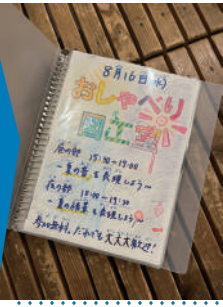 8月16日(水)
おしゃべり
図工室
昼の部 15:30～17:00
～夏の音を表現しよう～
夜の部 18:00～19:30
～夏の積業を表現しよう～
参加無料、だれでも大大大歓迎!